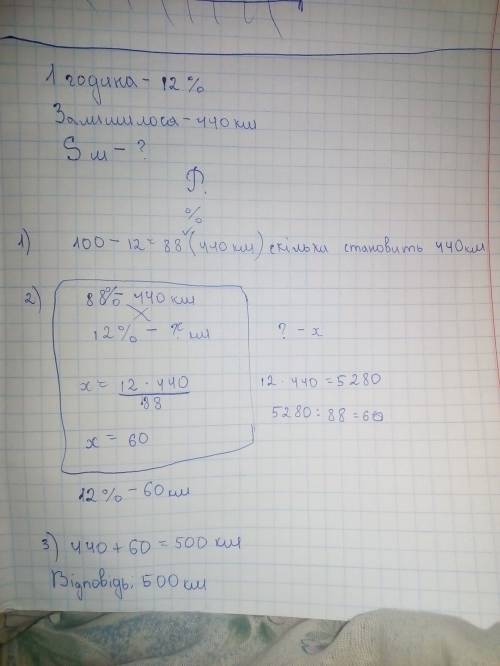 1 година - 12%
Залишилося - 440 км
S м - ?
P.
%
1) 100 - 12 = 88 (440 км) скільки становить 440км
2) 88% - 440 км
12% - x км ? - x
x = 12 · 440 / 88 12 · 440 = 5280
5280 : 88 = 60
x = 60
12% - 60 км
3) 440 + 60 = 500 км
Відповідь: 500 км